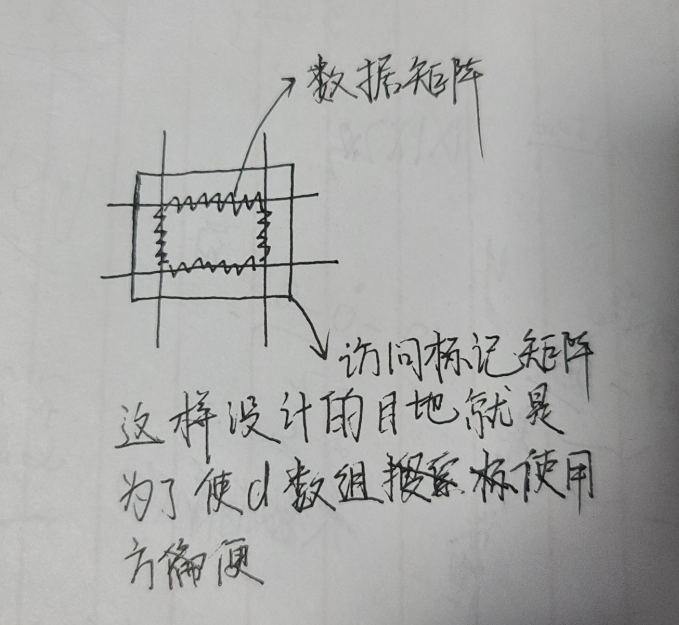 数据矩阵
访问标记矩阵
这样设计的目地就是
为了使d数组搜索标使用
方偏便